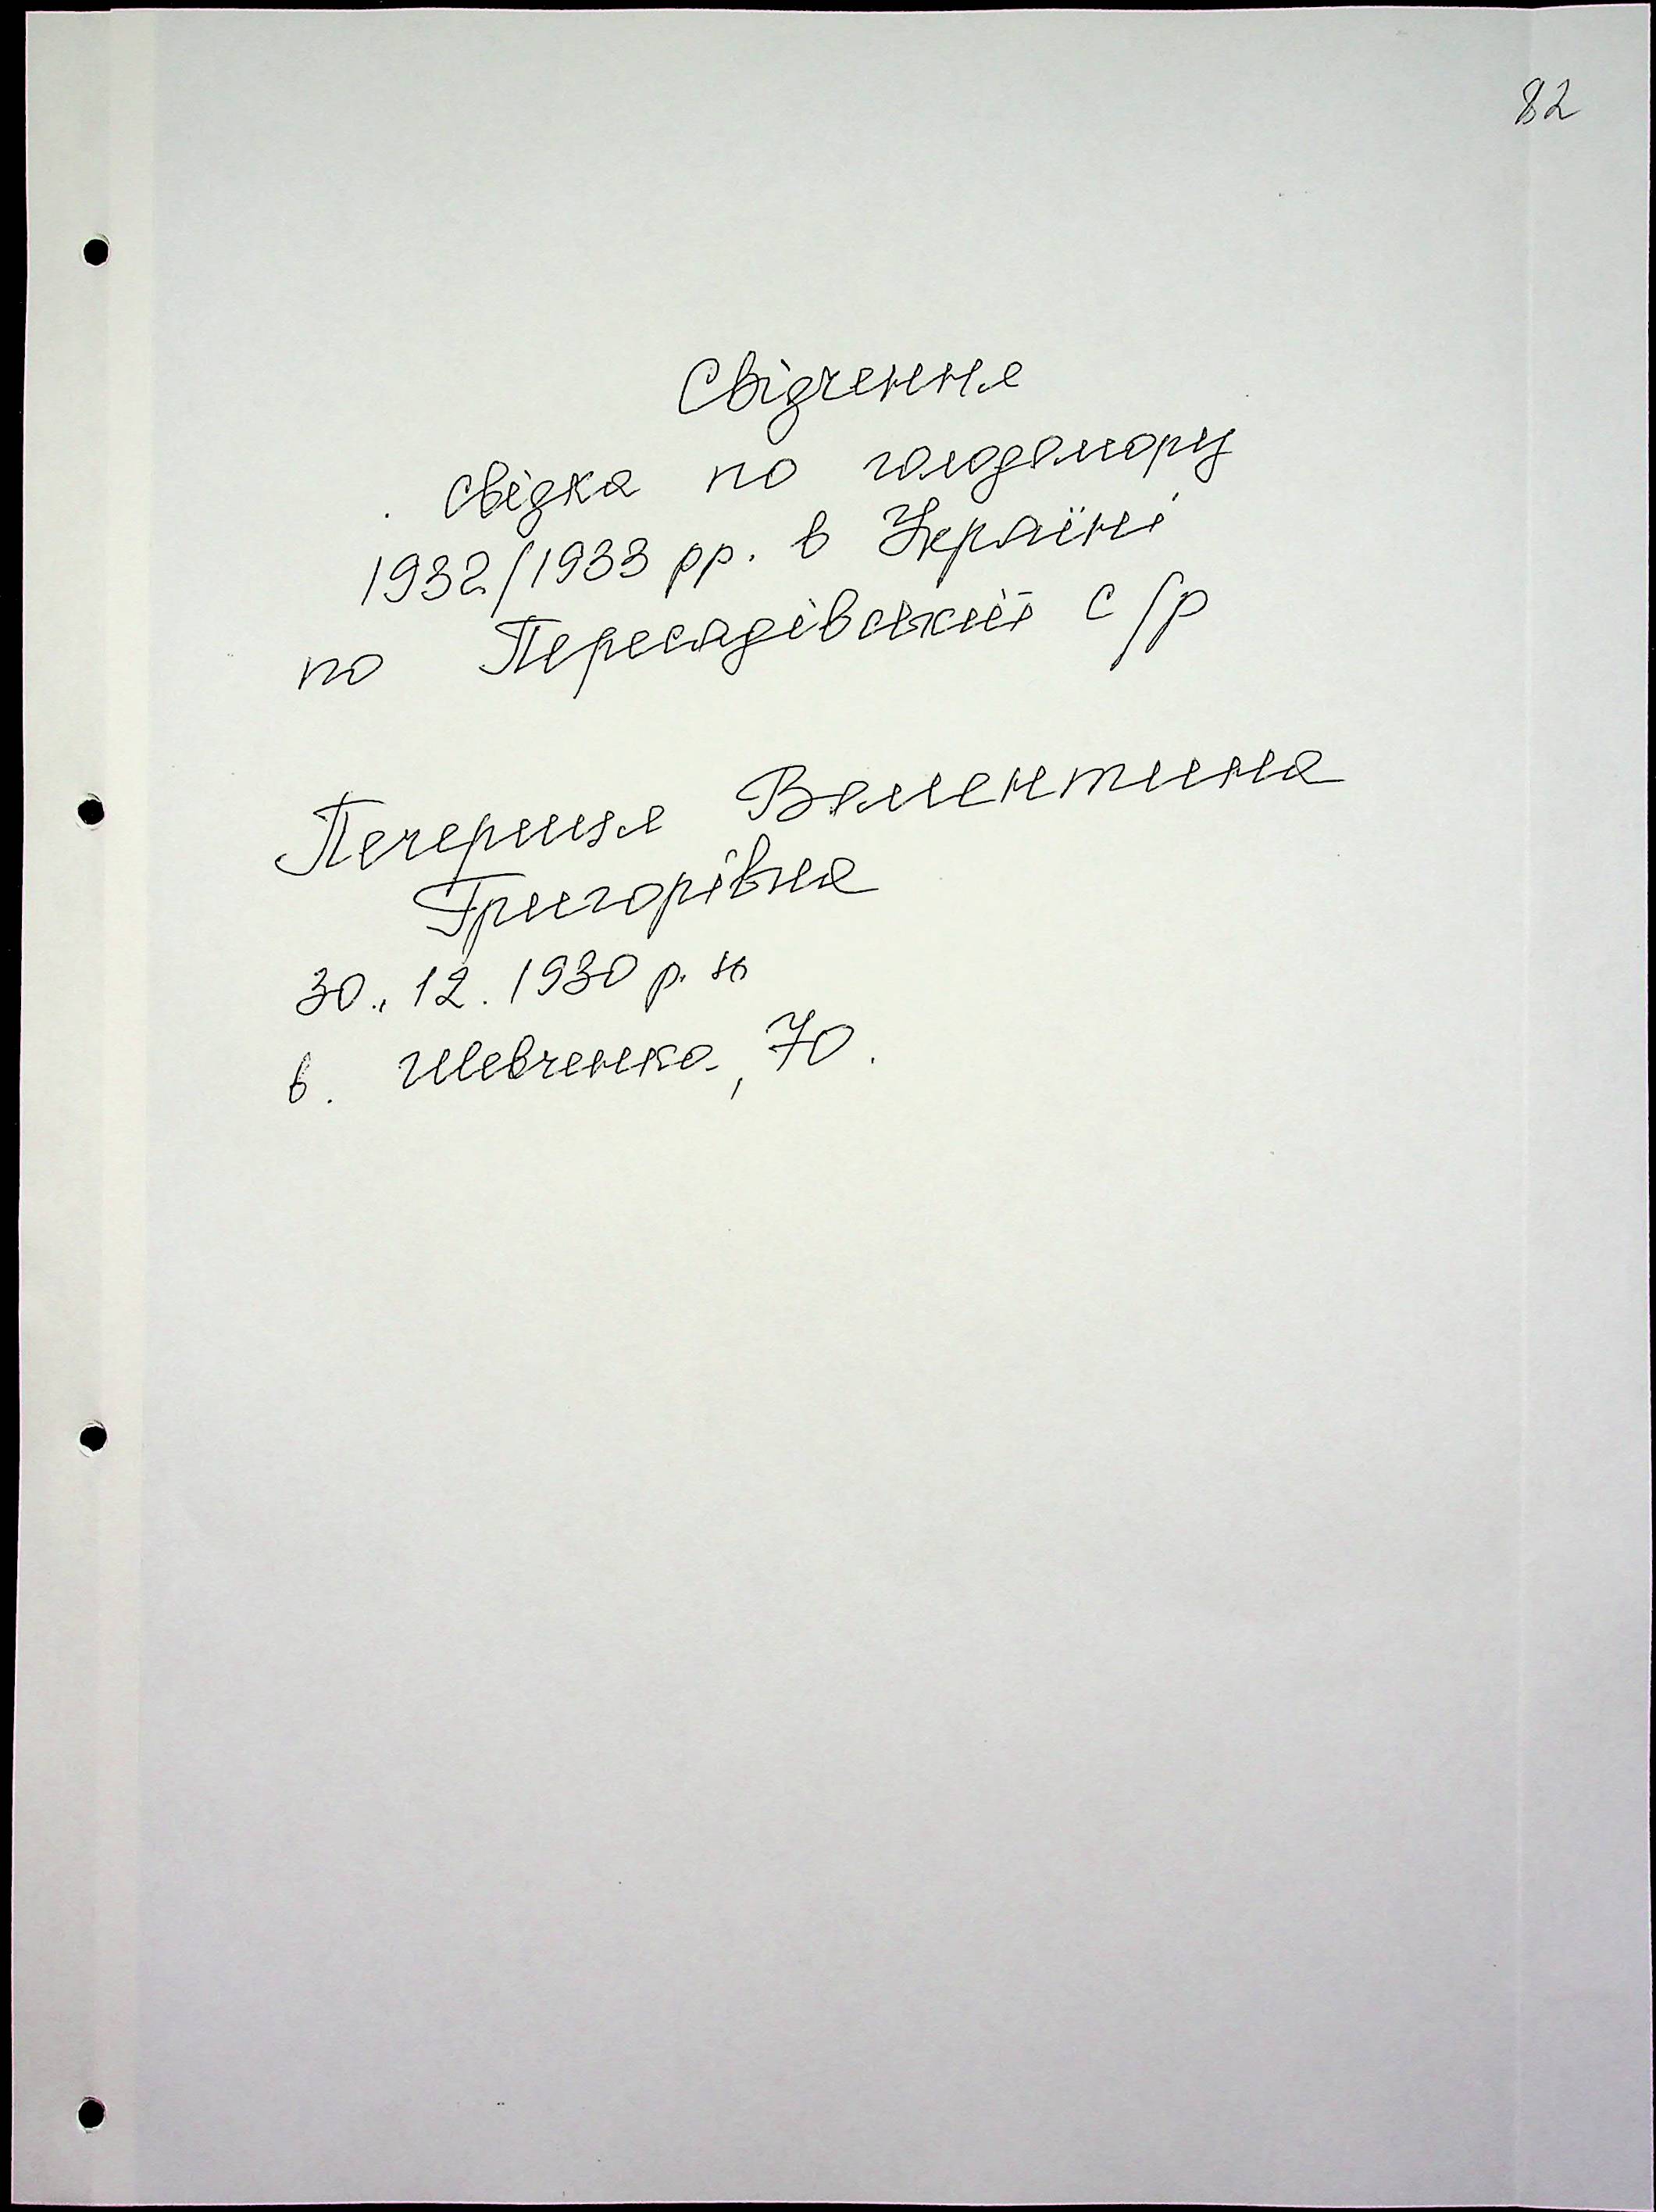 82
Свідчення
свідка по голодомору
1932/1933 рр. в Україні
по Пересадівській с/р
Печериця Валентина
Григорівна
30.12.1930 р. н
в. Шевченка, 70.